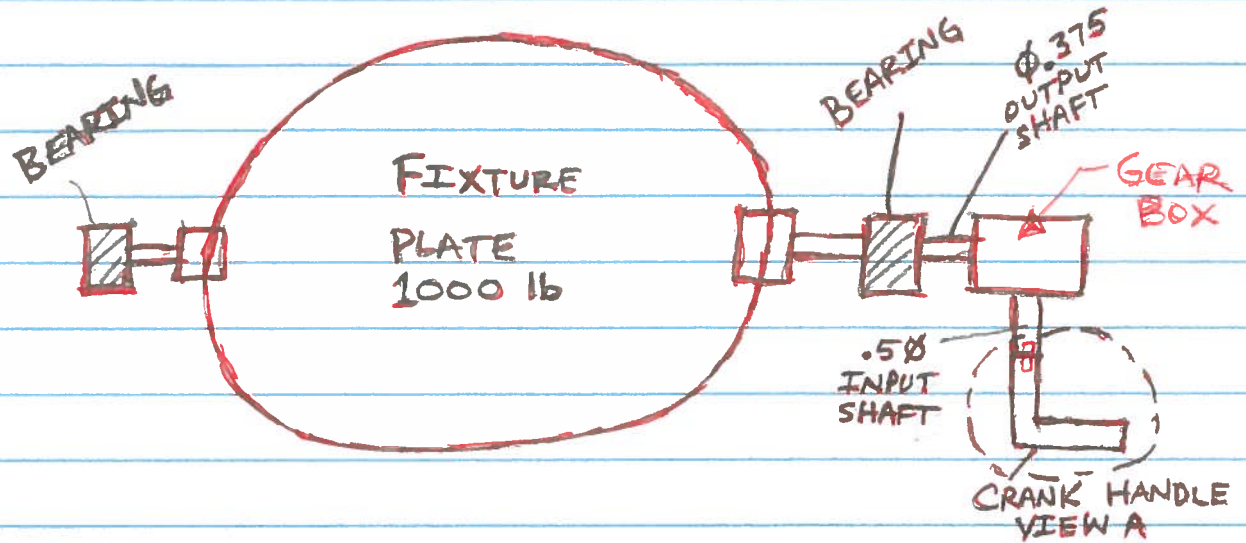 BEARING
FIXTURE
PLATE
1000 lb
BEARING
Ø.375
OUTPUT
SHAFT
GEAR
BOX
.5Ø
INPUT
SHAFT
CRANK HANDLE
VIEW A